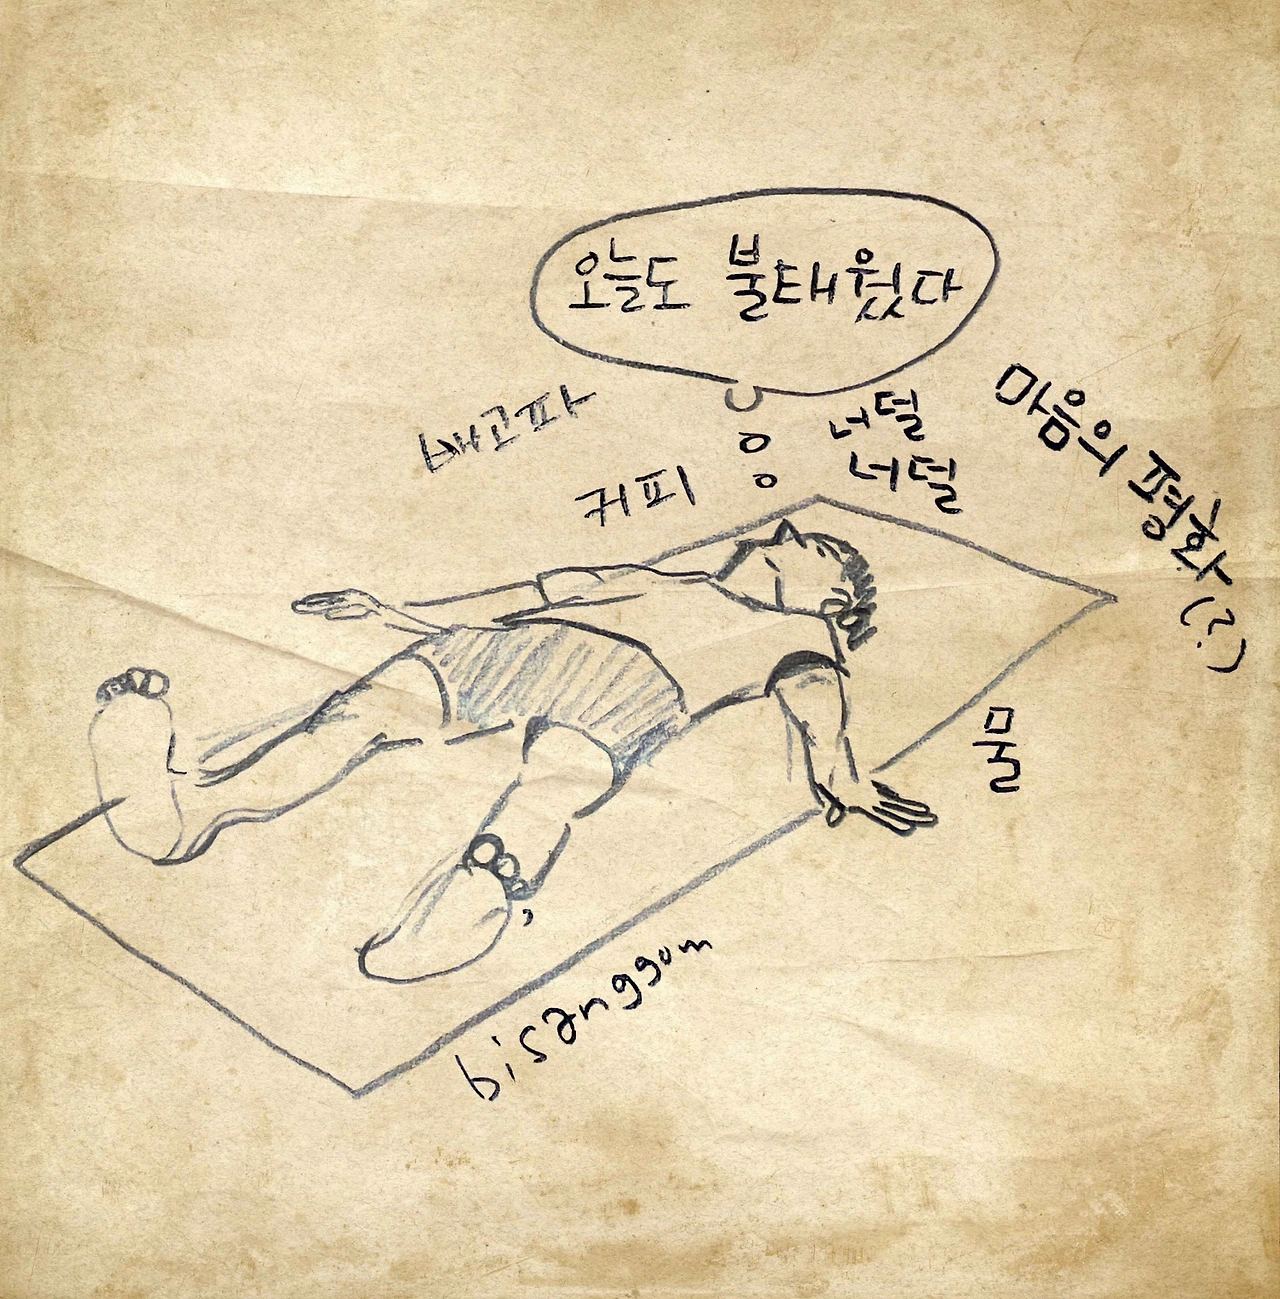 오늘도 불태웠다
배고파
커피
너덜
너덜
마음의 평화(?)
물
bisanggum